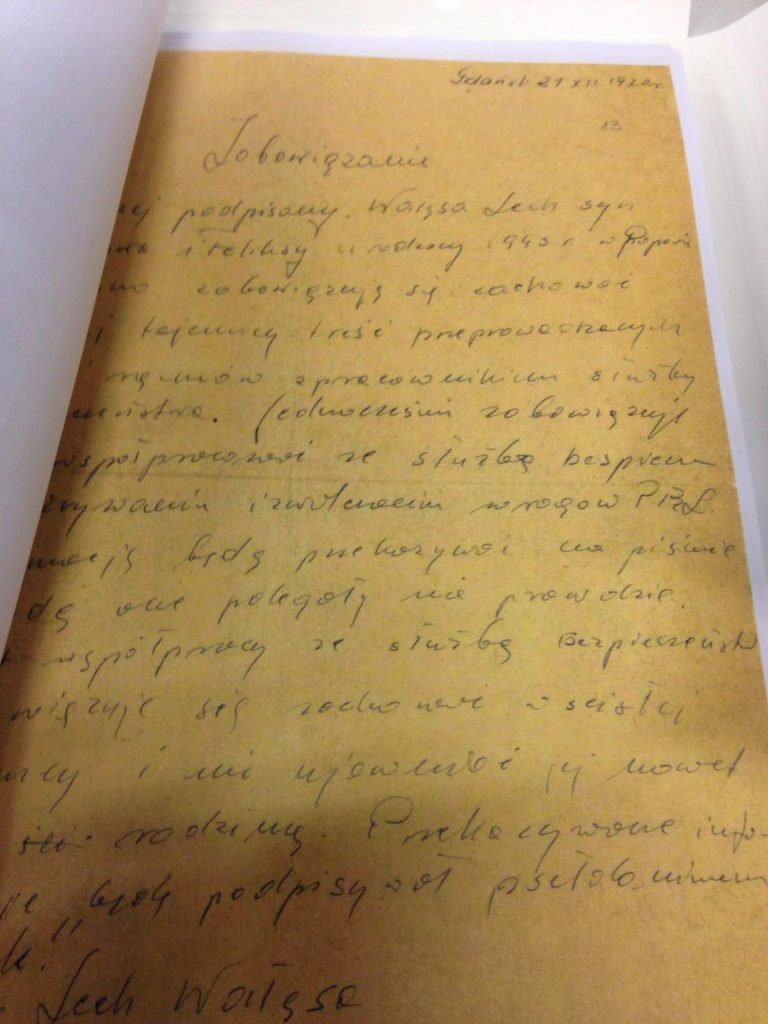 Gdańsk 21 XII 1970 r.
13
Zobowiązanie
ej podpisany. Wałęsa Lech syn
i Feliksy urodzony 1943 r. w Popowi
zobowiązują się zachować
j tajemnicy treść przeprowadzonych
z pracownikiem służby
zeństwa. Jednocześnie zobowiązuję
współpracować ze służbą bezpiecz
rywaniu i zwalczaniu wrogów PRL.
macją będą przekazywać na piśmie
dą one polegały na prawdzie.
współpracy ze służbą Bezpieczeństw
wiązuję się zachować w ścisłej
nicy i nie ujawniać jej nawet
rodziną. Przekazywane info-
je będę podpisywał pseudonimem
k."
Lech Wałęsa